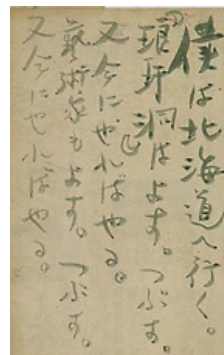 僕は北海道へ行く。
琅玕洞はよす。つぶす。
又今にやればやる。
藝術家もよす。つぶす。
又今にやればやる。